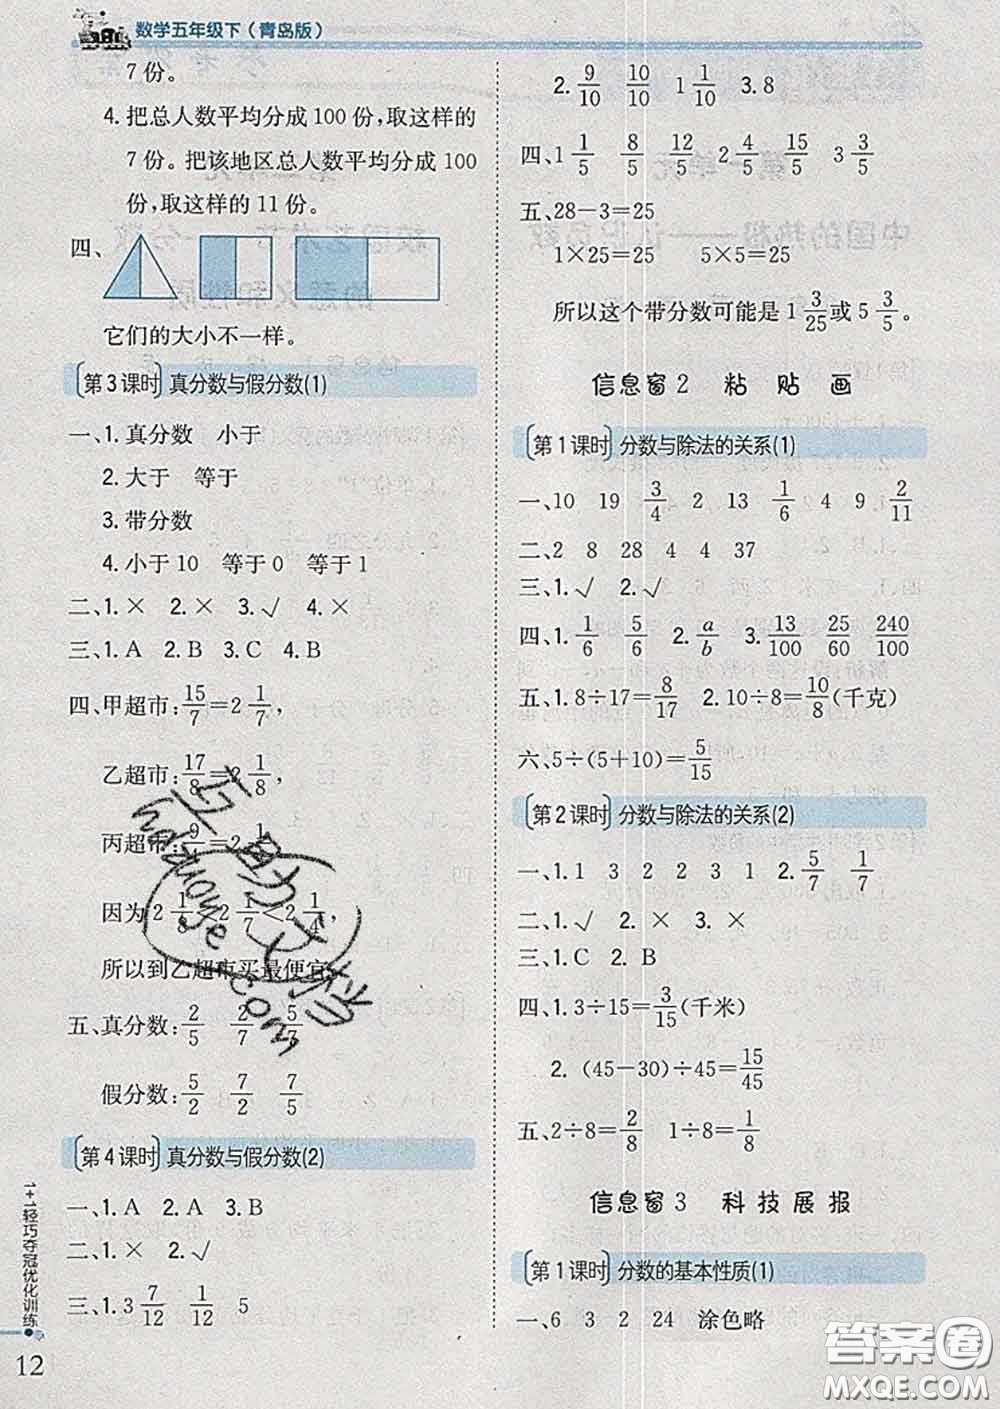 数学五年级下（青岛版）
7 份。
4. 把总人数平均分成 100 份，取这样的
7 份。把该地区总人数平均分成 100
份，取这样的 11 份。
四、
它们的大小不一样。
第 3 课时 真分数与假分数(1)
一、1. 真分数 小于
2. 大于 等于
3. 带分数
4. 小于 10 等于 0 等于 1
二、1. × 2. × 3. √ 4. ×
三、1. A 2. B 3. C 4. B
四、甲超市：15/7=2 1/7，
乙超市：17/8=2 1/8，
丙超市：9/4=2 1/4，
因为 2 1/8<2 1/7<2 1/4，
所以到乙超市买最便宜。
五、真分数：2/5 2/7 5/7
假分数：5/2 7/2 7/5
第 4 课时 真分数与假分数(2)
一、1. A 2. A 3. B
二、1. × 2. √
三、1. 3 7/12 1/12 5
1+1轻巧夺冠优化训练
12
2. 9/10 10/10 1 1/10 3. 8
四、1 1/5 8/5 2 4/5 15/5 3 3/5
五、28-3=25
1×25=25 5×5=25
所以这个带分数可能是 1 3/25 或 5 3/5。
信息窗 2 粘 贴 画
第 1 课时 分数与除法的关系(1)
一、10 19 3/4 2 13 1/6 4 9 2/11
二、2 8 28 4 4 37
三、1. √ 2. √
四、1. 1/6 5/6 2. a/b 3. 13/100 25/60 240/100
五、1. 8÷17=8/17 2. 10÷8=10/8(千克)
六、5÷(5+10)=5/15
第 2 课时 分数与除法的关系(2)
一、1. 1 3 2 2 3 1 2. 5/7 1/7
二、1. √ 2. × 3. ×
三、1. C 2. B
四、1. 3÷15=3/15(千米)
2. (45-30)÷45=15/45
五、2÷8=2/8 1÷8=1/8
信息窗 3 科 技 展 报
第 1 课时 分数的基本性质(1)
一、6 3 2 24 涂色略
答案圈
MXQE.COM